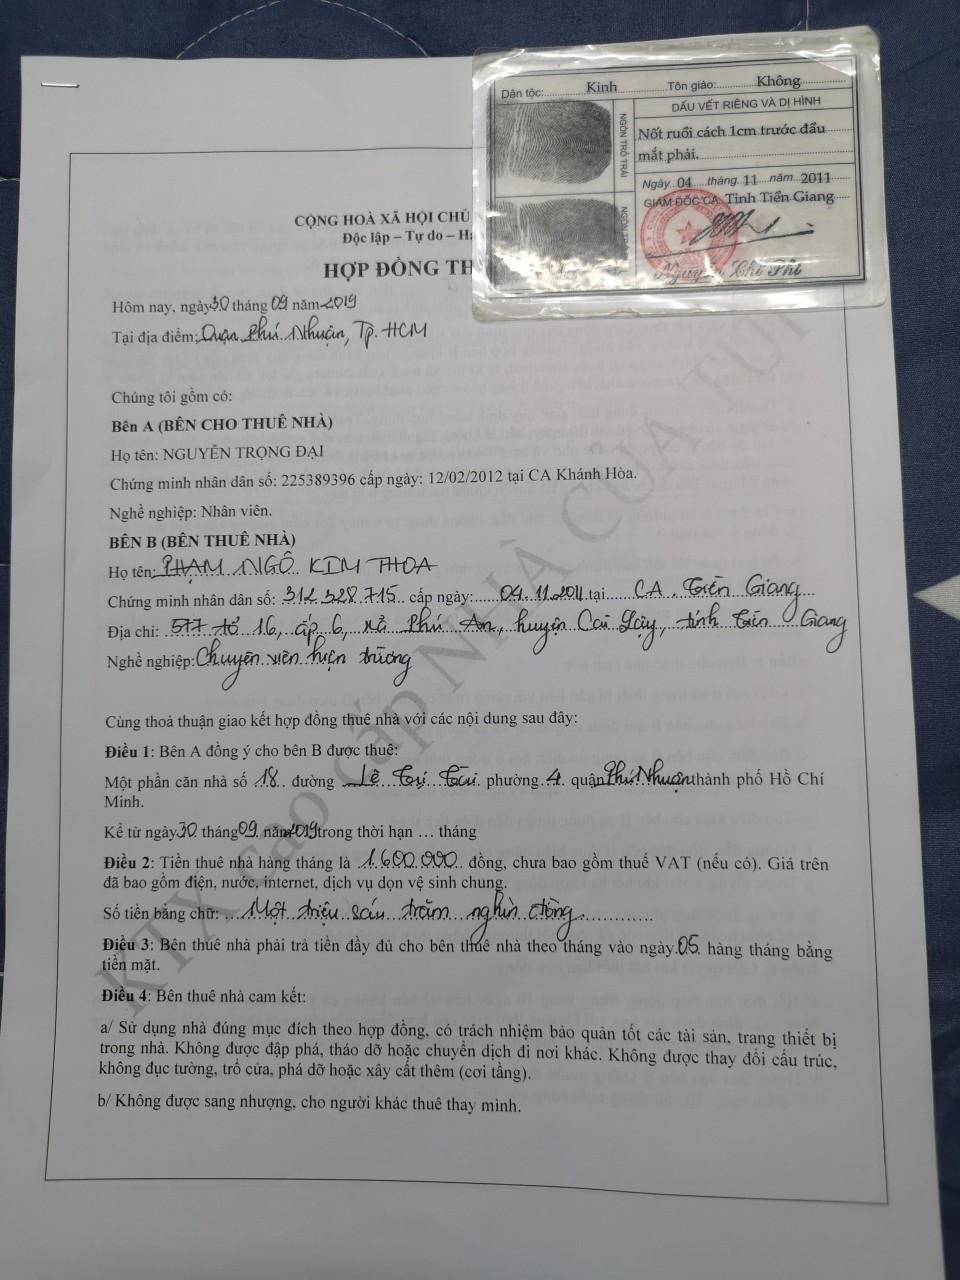 Dân tộc: Kinh Tôn giáo: Không
NGÓN TRỎ TRÁI
DẤU VẾT RIÊNG VÀ DỊ HÌNH
Nốt ruồi cách 1cm trước đầu
mắt phải.
Ngày 04 tháng 11 năm 2011
GIÁM ĐỐC CA Tỉnh Tiền Giang
Nguyễn Chí Phi
NGÓN TR
CỘNG HOÀ XÃ HỘI CHỦ
Độc lập – Tự do – Hạ
HỢP ĐỒNG TH
Hôm nay, ngày 30 tháng 09 năm 2019
Tại địa điểm: Quận Phú Nhuận, Tp. HCM
Chúng tôi gồm có:
Bên A (BÊN CHO THUÊ NHÀ)
Họ tên: NGUYỄN TRỌNG ĐẠI
Chứng minh nhân dân số: 225389396 cấp ngày: 12/02/2012 tại CA Khánh Hòa.
Nghề nghiệp: Nhân viên.
BÊN B (BÊN THUÊ NHÀ)
Họ tên: PHẠM NGÔ KIM THOA
Chứng minh nhân dân số: 312 328 715 cấp ngày: 04.11.2011 tại CA. Tiền Giang
Địa chỉ: 577 tổ 16, ấp 6, xã Phú An, huyện Cai Lậy, tỉnh Tiền Giang
Nghề nghiệp: Chuyên viên hiện trường
Cùng thoả thuận giao kết hợp đồng thuê nhà với các nội dung sau đây:
Điều 1: Bên A đồng ý cho bên B được thuê:
Một phần căn nhà số 18 đường Lê Tự Tài phường 4 quận Phú Nhuận thành phố Hồ Chí
Minh.
Kể từ ngày 30 tháng 09 năm 2019 trong thời hạn … tháng
Điều 2: Tiền thuê nhà hàng tháng là 1.600.000 đồng, chưa bao gồm thuế VAT (nếu có). Giá trên
đã bao gồm điện, nước, internet, dịch vụ dọn vệ sinh chung.
Số tiền bằng chữ: Một triệu sáu trăm nghìn đồng
Điều 3: Bên thuê nhà phải trả tiền đầy đủ cho bên thuê nhà theo tháng vào ngày 05 hàng tháng bằng
tiền mặt.
Điều 4: Bên thuê nhà cam kết:
a/ Sử dụng nhà đúng mục đích theo hợp đồng, có trách nhiệm bảo quản tốt các tài sản, trang thiết bị
trong nhà. Không được đập phá, tháo dỡ hoặc chuyển dịch đi nơi khác. Không được thay đổi cấu trúc,
không đục tường, trổ cửa, phá dỡ hoặc xây cất thêm (cơi tầng).
b/ Không được sang nhượng, cho người khác thuê thay mình.
KTX Cao cấp NHÀ CỦA TUI